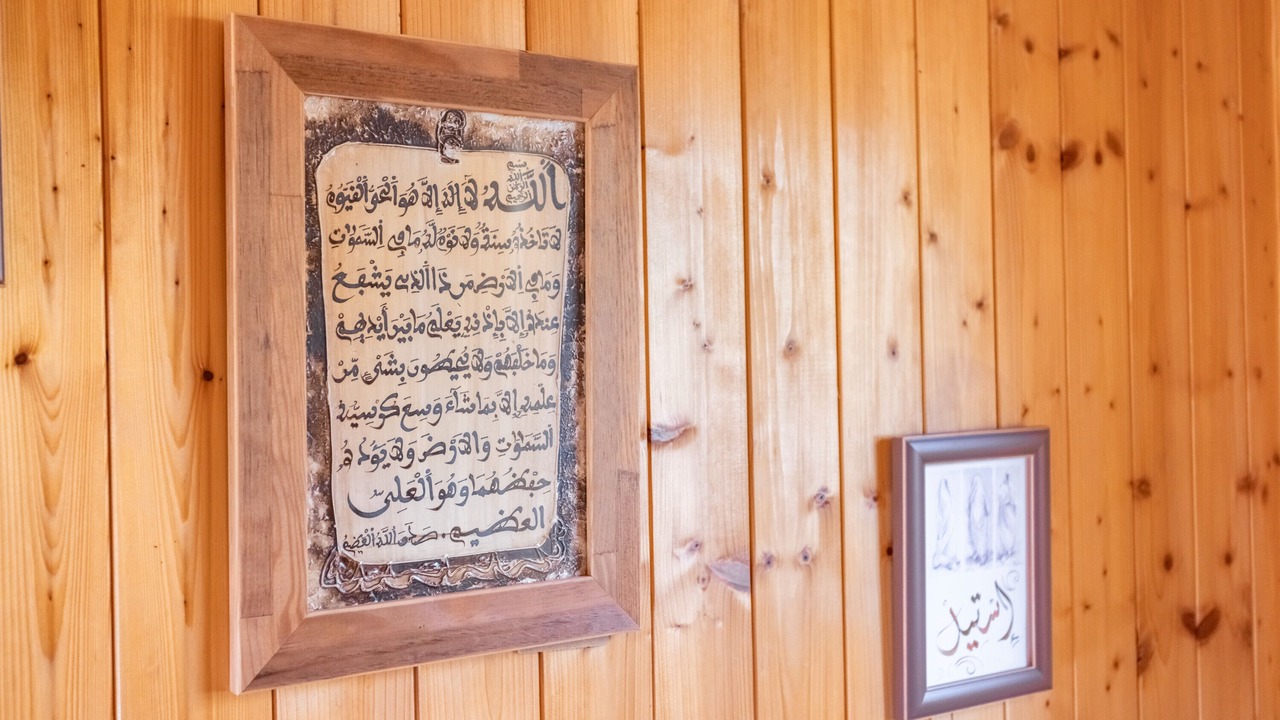 بسم الله الرحمن الرحيم
اَللَّهُ لَا إِلَٰهَ إِلَّا هُوَ اَلْحَيُّ اَلْقَيُّومُ
لَا تَاخُذُهُ سِنَةٌ وَلَا نَوْمٌ لَّهُ مَا فِي اِلسَّمَٰوَٰتِ
وَمَا فِي اِلَارْضِ مَن ذَا اَلَّذِي يَشْفَعُ
عِندَهُ إِلَّا بِإِذْنِهِ يَعْلَمُ مَا بَيْنَ أَيْدِيهِمْ
وَمَا خَلْفَهُمْ وَلَا يُحِيطُونَ بِشَيْءٍ مِّنْ
عِلْمِهِ إِلَّا بِمَا شَآءَ وَسِعَ كُرْسِيُّهُ
اُلسَّمَٰوَٰتِ وَالَارْضَ وَلَا يَؤُدُهُ
حِفْظُهُمَا وَهُوَ اَلْعَلِيُّ
اَلْعَظِيمُ. صَدَقَ اَللَّهُ اَلْعَظِيمُ
إستيل